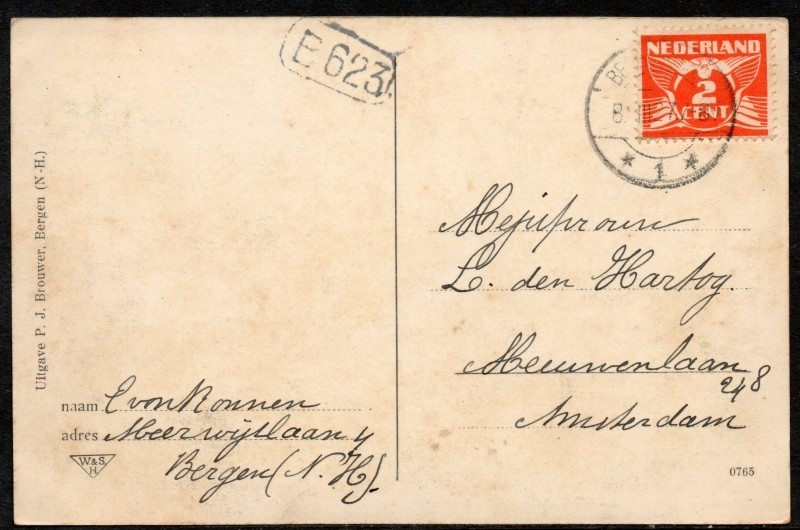 E 623
NEDERLAND
2
CENT
1
Uitgave P. J. Brouwer, Bergen (N-H.)
Mejufprouw
L. den Hartog.
Meeuwenlaan
248
Amsterdam
naam C von Konnen
adres Meerwijklaan 4
Bergen (N. H.)
W&S.
H.
0765